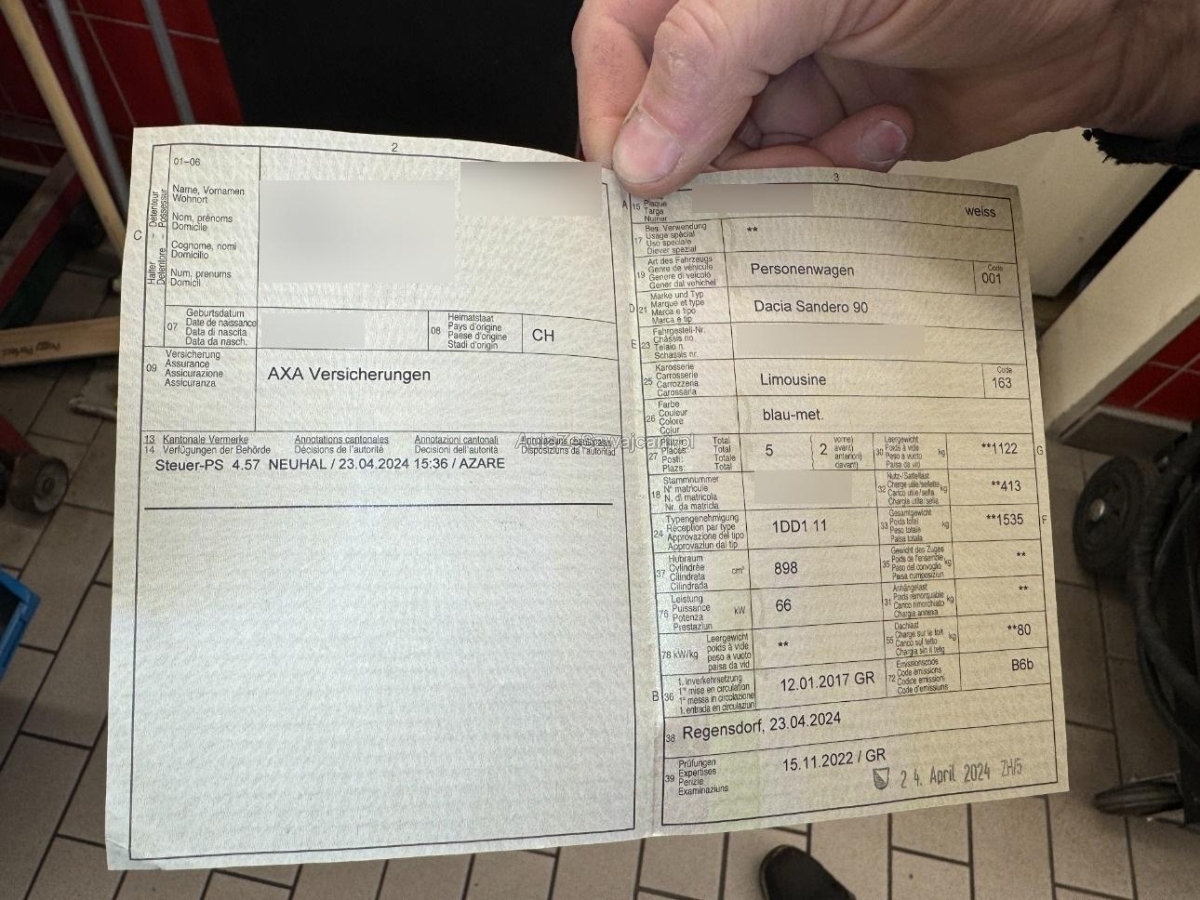 2
01-06
Name, Vornamen
Wohnort
Nom, prénoms
Domicile
Cognome, nomi
Domicilio
Num, prenums
Domicil
C
Halter - Détenteur
Detentore - Possessur
07
Geburtsdatum
Date de naissance
Data di nascita
Data da nasch.
08
Heimatstaat
Pays d'origine
Paese d'origine
Stadi d'origin
CH
09
Versicherung
Assurance
Assicurazione
Assicuranza
AXA Versicherungen
13 Kantonale Vermerke Annotations cantonales Annotazioni cantonali Annotaziuns chantunalas
14 Verfügungen der Behörde Décisions de l'autorité Decisioni dell'autorità Disposiziuns da l'autoritad
Steuer-PS 4.57 NEUHAL / 23.04.2024 15:36 / AZARE
3
A 15
Plaque
Targa
Numer
weiss
17
Bes. Verwendung
Usage spécial
Uso speciale
Diever spezial
**
19
Art des Fahrzeugs
Genre de véhicule
Genere di veicolo
Gener dal vehichel
Personenwagen
Code
001
D 21
Marke und Typ
Marque et type
Marca e tipo
Marca e tip
Dacia Sandero 90
E 23
Fahrgestell-Nr.
Châssis no
Telaio n.
Schassis nr.
25
Karosserie
Carrosserie
Carrozzeria
Carossaria
Limousine
Code
163
26
Farbe
Couleur
Colore
Colur
blau-met.
27
Plätze: Total
Places: Total
Posti: Totale
Plazs: Total
5
2
vorne)
avant)
anteriori)
davant)
30
Leergewicht
Poids à vide
Peso a vuoto
Paisa da vid
kg
**1122
G
18
Stammnummer
N° matricule
N. di matricola
Nr. da matricla
32
Nutz-/Sattellast
Charge utile/sellette
Carico utile/sella
kg
**413
24
Typengenehmigung
Réception par type
Approvazione del tipo
Approvaziun dal tip
1DD1 11
33
Gesamtgewicht
Poids total
Peso totale
Paisa totala
kg
**1535
F
37
Hubraum
Cylindrée
Cilindrata
Cilindrada
cm³
898
35
Gewicht des Zuges
Poids de l'ensemble
Peso del convoglio
Paisa cumposiziun
kg
**
76
Leistung
Puissance
Potenza
Prestaziun
kW
66
31
Anhängelast
Poids remorquable
Carico rimorchiato
Chargia annexa
kg
**
78 kW/kg
Leergewicht
poids à vide
peso a vuoto
paisa da vid
**
55
Dachlast
Charge sur le toit
Carico sul tetto
Chargia sin il tetg
kg
**80
B 36
1. Inverkehrsetzung
1re mise en circulation
1a messa in circolazione
1. entrada en circulaziun
12.01.2017 GR
72
Emissionscode
Code émissions
Codice emissioni
Code d'emissiuns
B6b
38 Regensdorf, 23.04.2024
39
Prüfungen
Expertises
Perizie
Examinaziuns
15.11.2022 / GR
24. April 2024 ZH/5